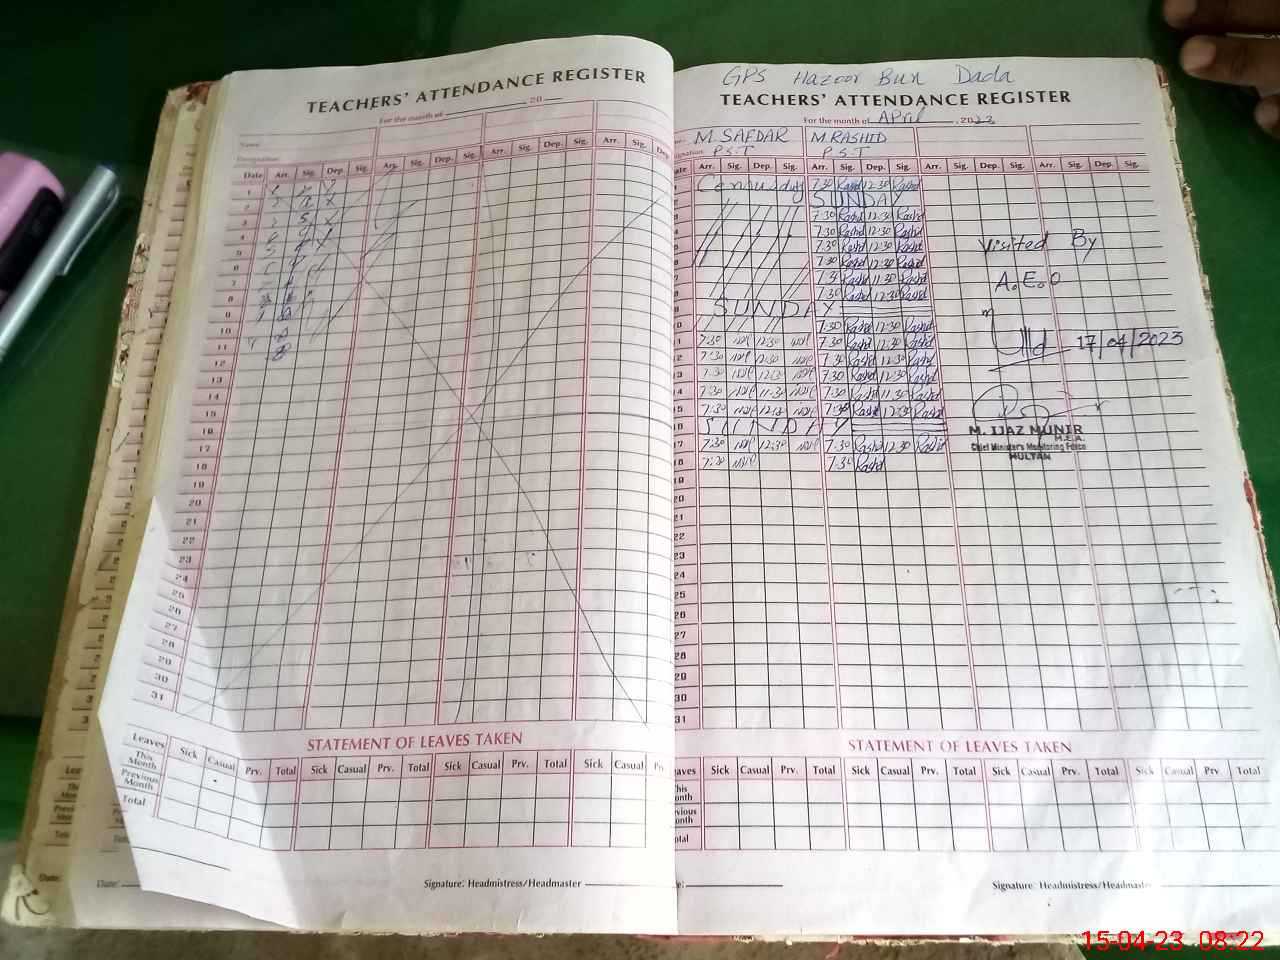 TEACHERS' ATTENDANCE REGISTER
For the month of 20
Name:
Designation:
Date Arr. Sig. Dep. Sig. Arr. Sig. Dep. Sig. Arr. Sig. Dep. Sig. Arr. Sig. Dep.
1
2
3
4
5
6
7
8
9
10
11
12
13
14
15
16
17
18
19
20
21
22
23
24
25
26
27
28
29
30
31
STATEMENT OF LEAVES TAKEN
Leaves Sick Casual Prv. Total Sick Casual Prv. Total Sick Casual Prv. Total Sick Casual Prv
This Month
Previous Month
Total
Date:
Signature: Headmistress/Headmaster
GPS Hazoor Bux Dada
TEACHERS' ATTENDANCE REGISTER
For the month of APril, 2023
M. SAFDAR M. RASHID
P.S.T P.S.T
Arr. Sig. Dep. Sig. Arr. Sig. Dep. Sig. Arr. Sig. Dep. Sig. Arr. Sig. Dep. Sig.
7:30 Rashd 12:30 Rashd
SUNDAY
7:30 Rashd 12:30 Rashd
7:30 Rashd 12:30 Rashd
7:30 Rashd 12:30 Rashd
7:30 Rashd 12:30 Rashd
7:30 Rashd 11:30 Rashd
7:30 Rashd 12:30 Rashd
SUNDAY
7:30 Rashd 12:30 Rashd
11 7:30 12:30 7:30 Rashd 12:30 Rashd
12 7:30 12:30 7:30 Rashd 12:30 Rashd
13 7:30 12:30 7:30 Rashd 12:30 Rashd
14 7:30 11:30 7:30 Rashd 11:30 Rashd
15 7:30 7:30 Rashd 12:30 Rashd
16 SUNDAY
17 7:30 12:30 7:30 Rashd 12:30 Rashd
18 7:30 7:30 Rashd
19
20
21
22
23
24
25
26
27
28
29
30
31
Visited By
A.E.O
17/04/2023
M. IJAZ MUNIR
M.E.A.
Chief Minister's Monitoring Force
MULTAN
STATEMENT OF LEAVES TAKEN
Sick Casual Prv. Total Sick Casual Prv. Total Sick Casual Prv. Total Sick Casual Prv Total
Signature: Headmistress/Headmaster
15-04-23 08:22